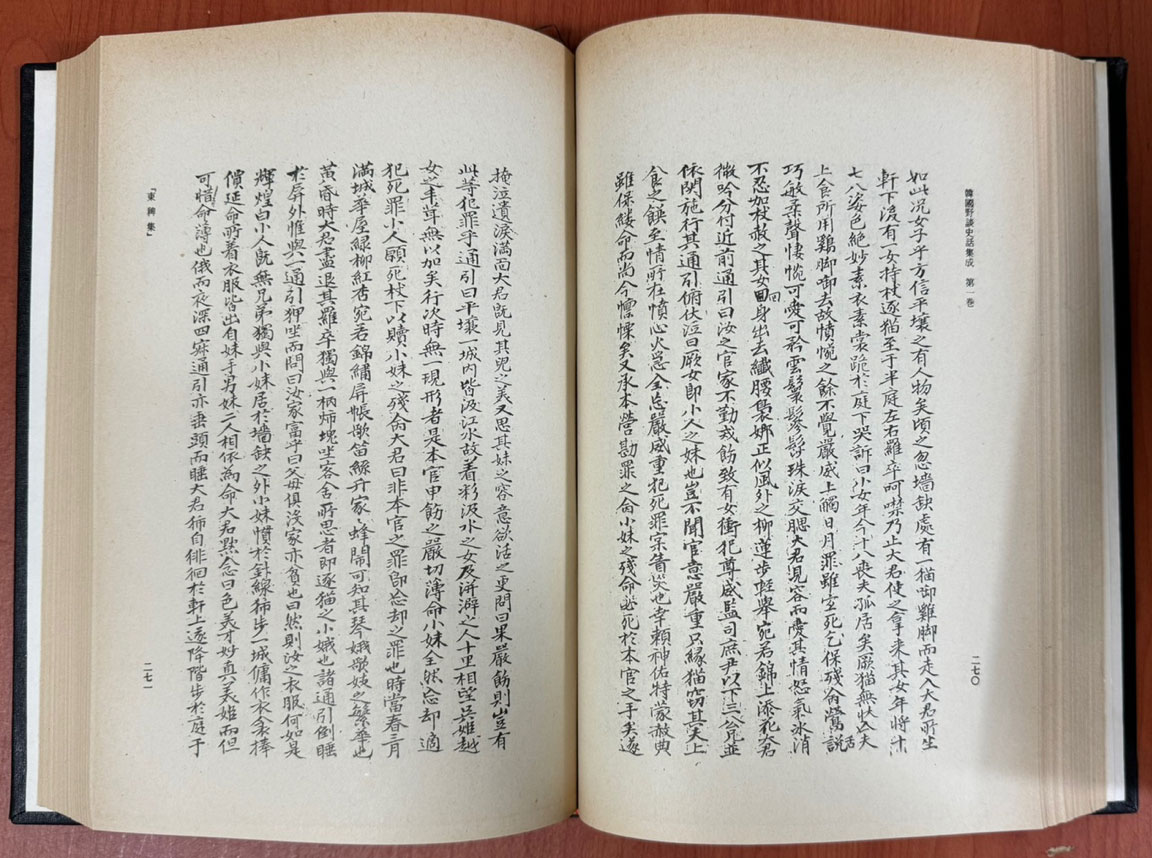 韓國野談史話集成 第一卷
如此况女子乎方信平壤之有人物矣頃之忽墻缺處有一猫啣雞脚而走入大君所坐
軒下後有一女持杖逐猫至于半庭左右羅卒呵噤乃止大君使之拿来其女年將十
七八姿色絶妙素衣素裳跪於庭下哭訴曰小女年今十八喪夫孤居矣厥猫無狀亡夫
上食所用鷄脚啣去故憤惋之餘不覺嚴威上觸日月罪雖室死乞保残命鶯舌說
巧敏柔聲悽惋可愛可矜雲鬟鬖髿珠淚交腮大君見容而愛其情怒氣氷消
不忍加杖赦之其女回身出去纖腰裊娜正似風外之柳蓮步輕擧宛若錦上添死大君
微吟分付近前通引曰汝之官家不勤戒飭致有女衝犯尊威監司庶尹以下三公兄並
依関施行其通引俯伏泣曰厥女即小人之妹也豈不聞官意嚴重只緣猫窃其夫上
食之餗至情所在憤心火急全忘嚴威重犯死罪宗眚災也幸賴神佑特蒙赦典
雖保縷命而尚今懍慄矣又承本營勘罪之命小妹之殘命必死於本官之手矣遂
二七〇
掩泣遺淚滿面大君旣見其皃之美又思其妹之容意欲活之更問曰果嚴飭則豈有
此等犯罪乎通引曰平壤一城内皆汲江水故着彩汲水之女及洴澼之人十里相望吳姬越
女之丰茸無以加矣行次時無一現形者是本官申飭之嚴切薄命小妹全然忘却適
犯死罪小人願死杖下以贖小妹之殘命大君曰非本官之罪卽忘却之罪也時當春三月
滿城華屋綠柳紅杏宛若錦繡屏帳歌笛絲竹家〻蜂鬧可知其琴娥歌妓之繁華也
黃昏時大君盡退其羅卒獨與一柄炳塊坐客舍所思者即逐猫之小娥也諸通引倒睡
於屏外惟與一通引狎坐而問曰汝家富乎曰父母俱沒家亦貧也曰然則汝之衣服何如是
輝煌曰小人旣無兄弟獨與小妹居於墻缺之外小妹慣於針線柿步一城傭作衣食捧
價延命所着衣服皆出自妹手男妹二人相依為命大君點念曰色美才妙真美姬而但
可惜命薄也俄而夜深四寂通引亦垂頭而睡大君柿自徘徊於軒上逐降階步於庭于
『東稗集』
二七一